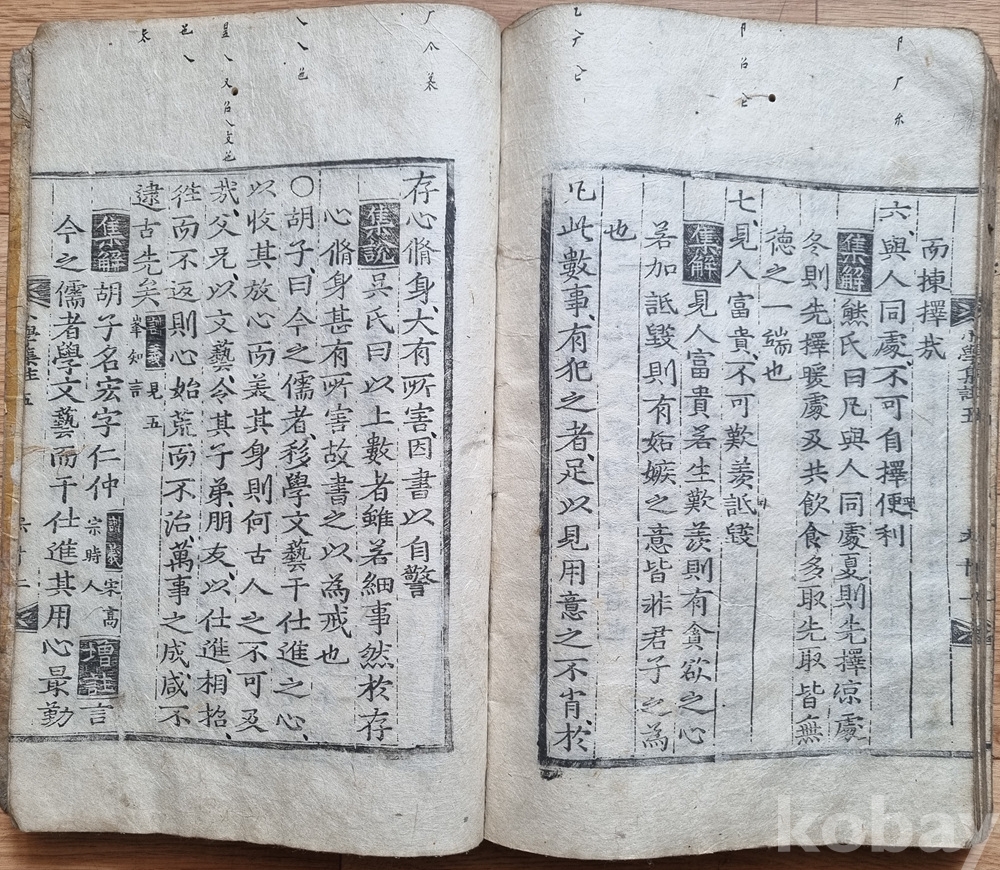 而揀擇哉
六、與人同處、不可自擇便利
集解熊氏曰凡與人同處夏則先擇凉處
冬則先擇暖處及共飮食多取先取皆無
德之一端也
七、見人富貴、不可歎羨、詆毀
集解見人富貴若生歎羨則有貪欲之心
若加詆毀則有妬嫉之意皆非君子之爲
也
凡此數事、有犯之者、足以見用意之不肖、於
存心脩身、大有所害、因書以自警
集說吳氏曰以上數者雖若細事然於存
心脩身甚有所害故書之以爲戒也
〇胡子、曰今之儒者、移學文藝干仕進之心、
以收其放心而美其身則何古人之不可及
哉、父兄、以文藝、令其子弟、朋友、以仕進、相招、
徃而不返則心始荒而不治萬事之成、咸不
逮古先矣 見五峯知言
集解胡子名宏字仁仲 宋高宗時人 增註言
今之儒者學文藝而干仕進其用心最勤
kobay